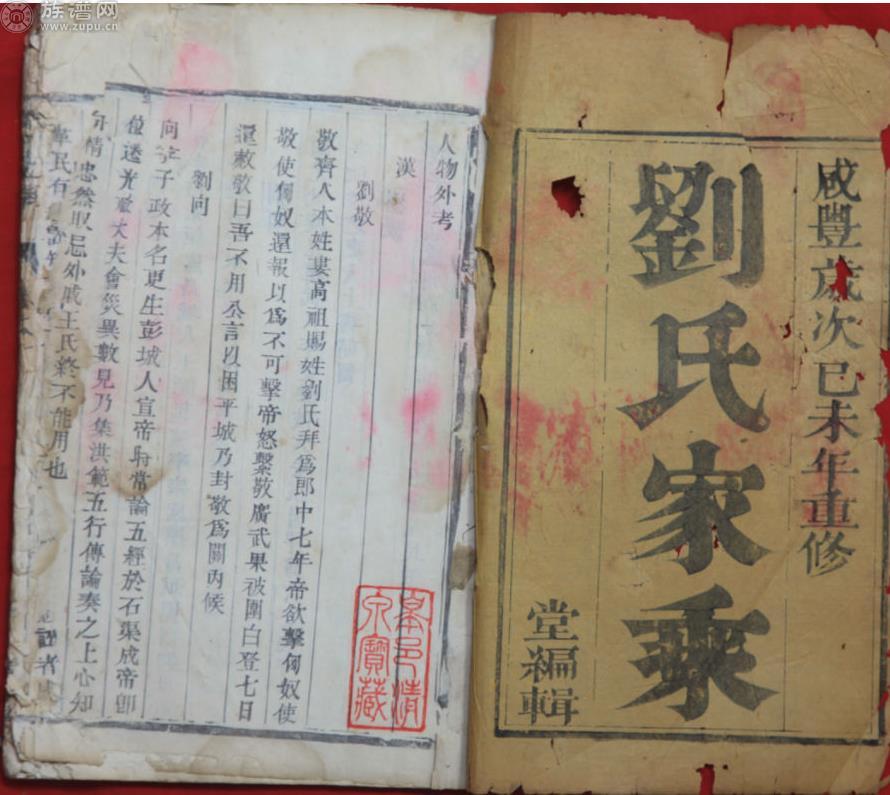 族谱网
www.zupu.cn
咸豐歲次己未年重修
劉氏家乘
堂編輯
人物外考
漢
劉敬
敬齊人本姓婁高祖賜姓劉氏拜為郎中七年帝欲擊匈奴使
敬使匈奴還報以為不可擊帝怒繫敬廣武果被圍白登七日
還赦敬曰吾不用公言以困平城乃封敬為關內候
劉向
向字子政本名更生彭城人宣帝時常論五經於石渠成帝即
位遷光祿大夫會災異數見乃集洪範五行傳論奏之上心知
情忠然取忌外戚王氏終不能用也
泉寶藏